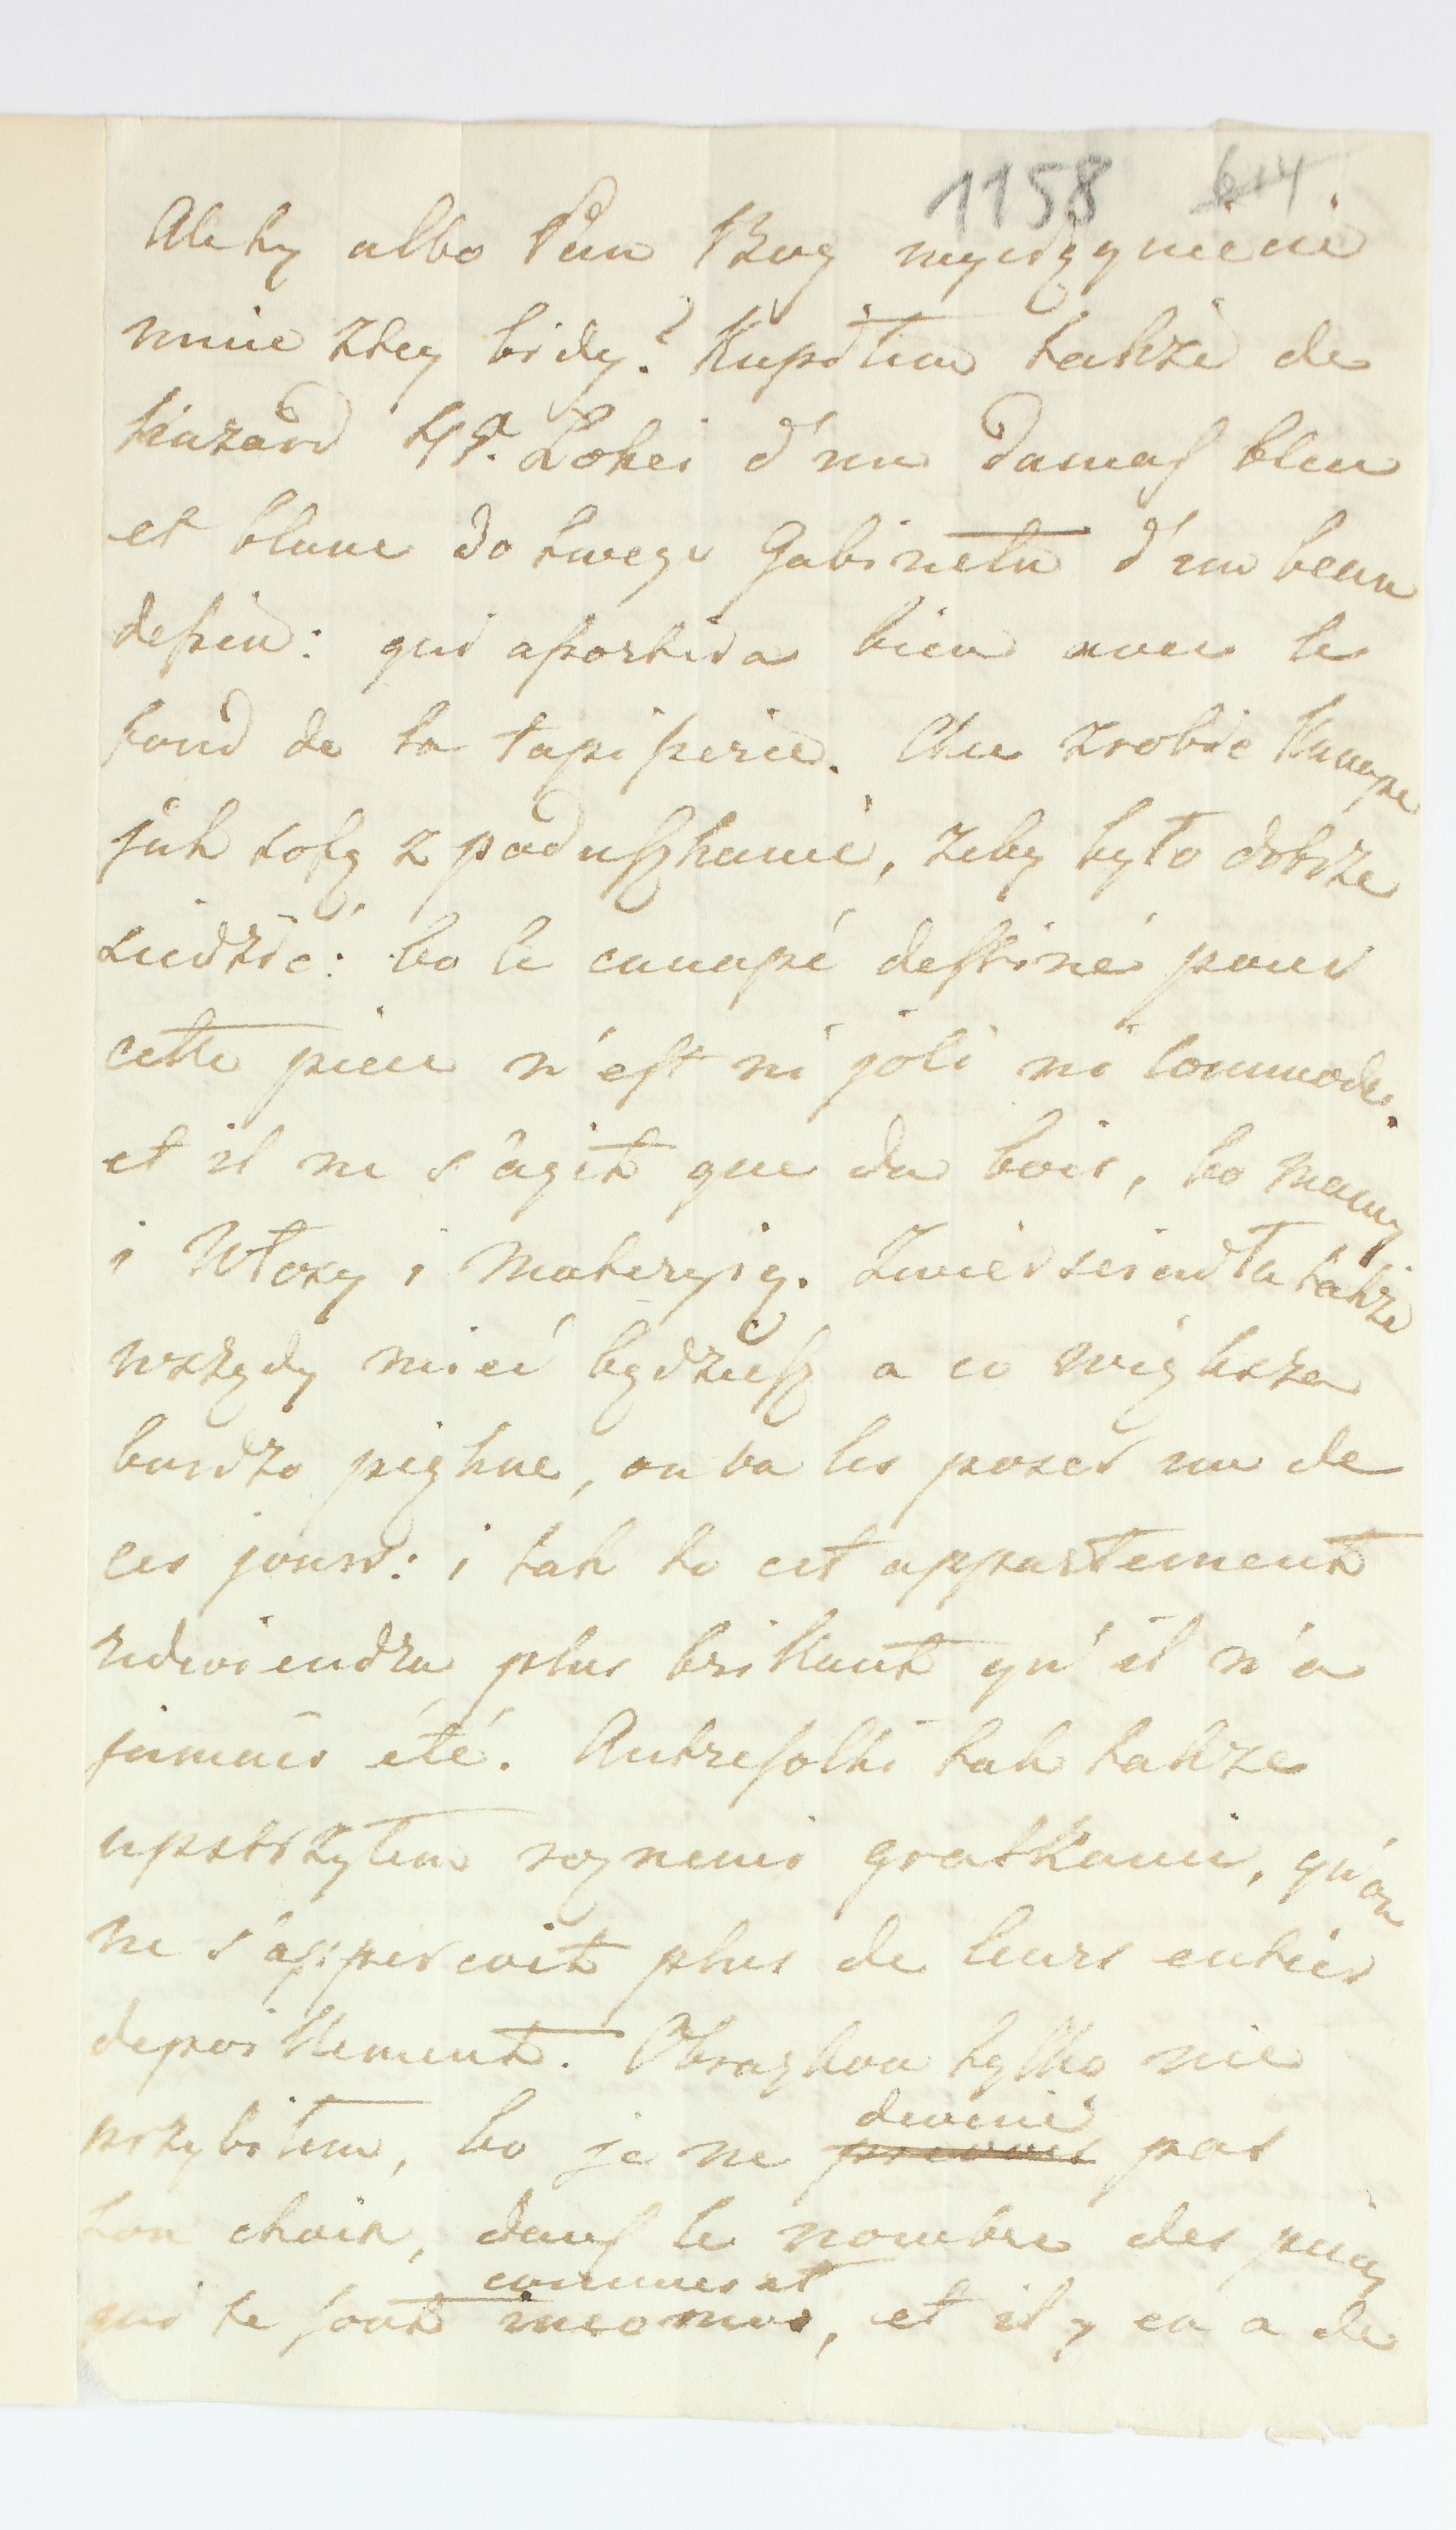 1158 614
Alety albo Pan Bog wyciągnienie
mnie z tey bidy? Kupiłem także de
hazard 44. Łokci d'un damas bleu
et blanc do twego Gabinetu d'un beau
dessin: qui assortira bien avec le
fond de la tapisserie. Chce zrobić Kanape
jak sofę z poduszkami, zeby było dobrze
siedzić: bo le canapé destiné pour
cette piece n'est ni joli ni commode.
et il ne s'agit que du bois, bo mamy
i Włosy i materyią. Zwierściadła także
wszędy mieć będziesz a co większa
bardzo piękne, on va les poser un de
ces jours: i tak to cet appartement
redeviendra plus brillant qu'il n'a
jamais été. Antresolki tak takze
upstrzyłem roznemi gratkami, qu'on
ne s'apperçoit plus de leurs entier
depouillement. Obrazkow tylko nie
przybiłem, bo je ne devine pas
ton choix, dans le nombre des
qui te sont connues et inconnus, et il y en a de